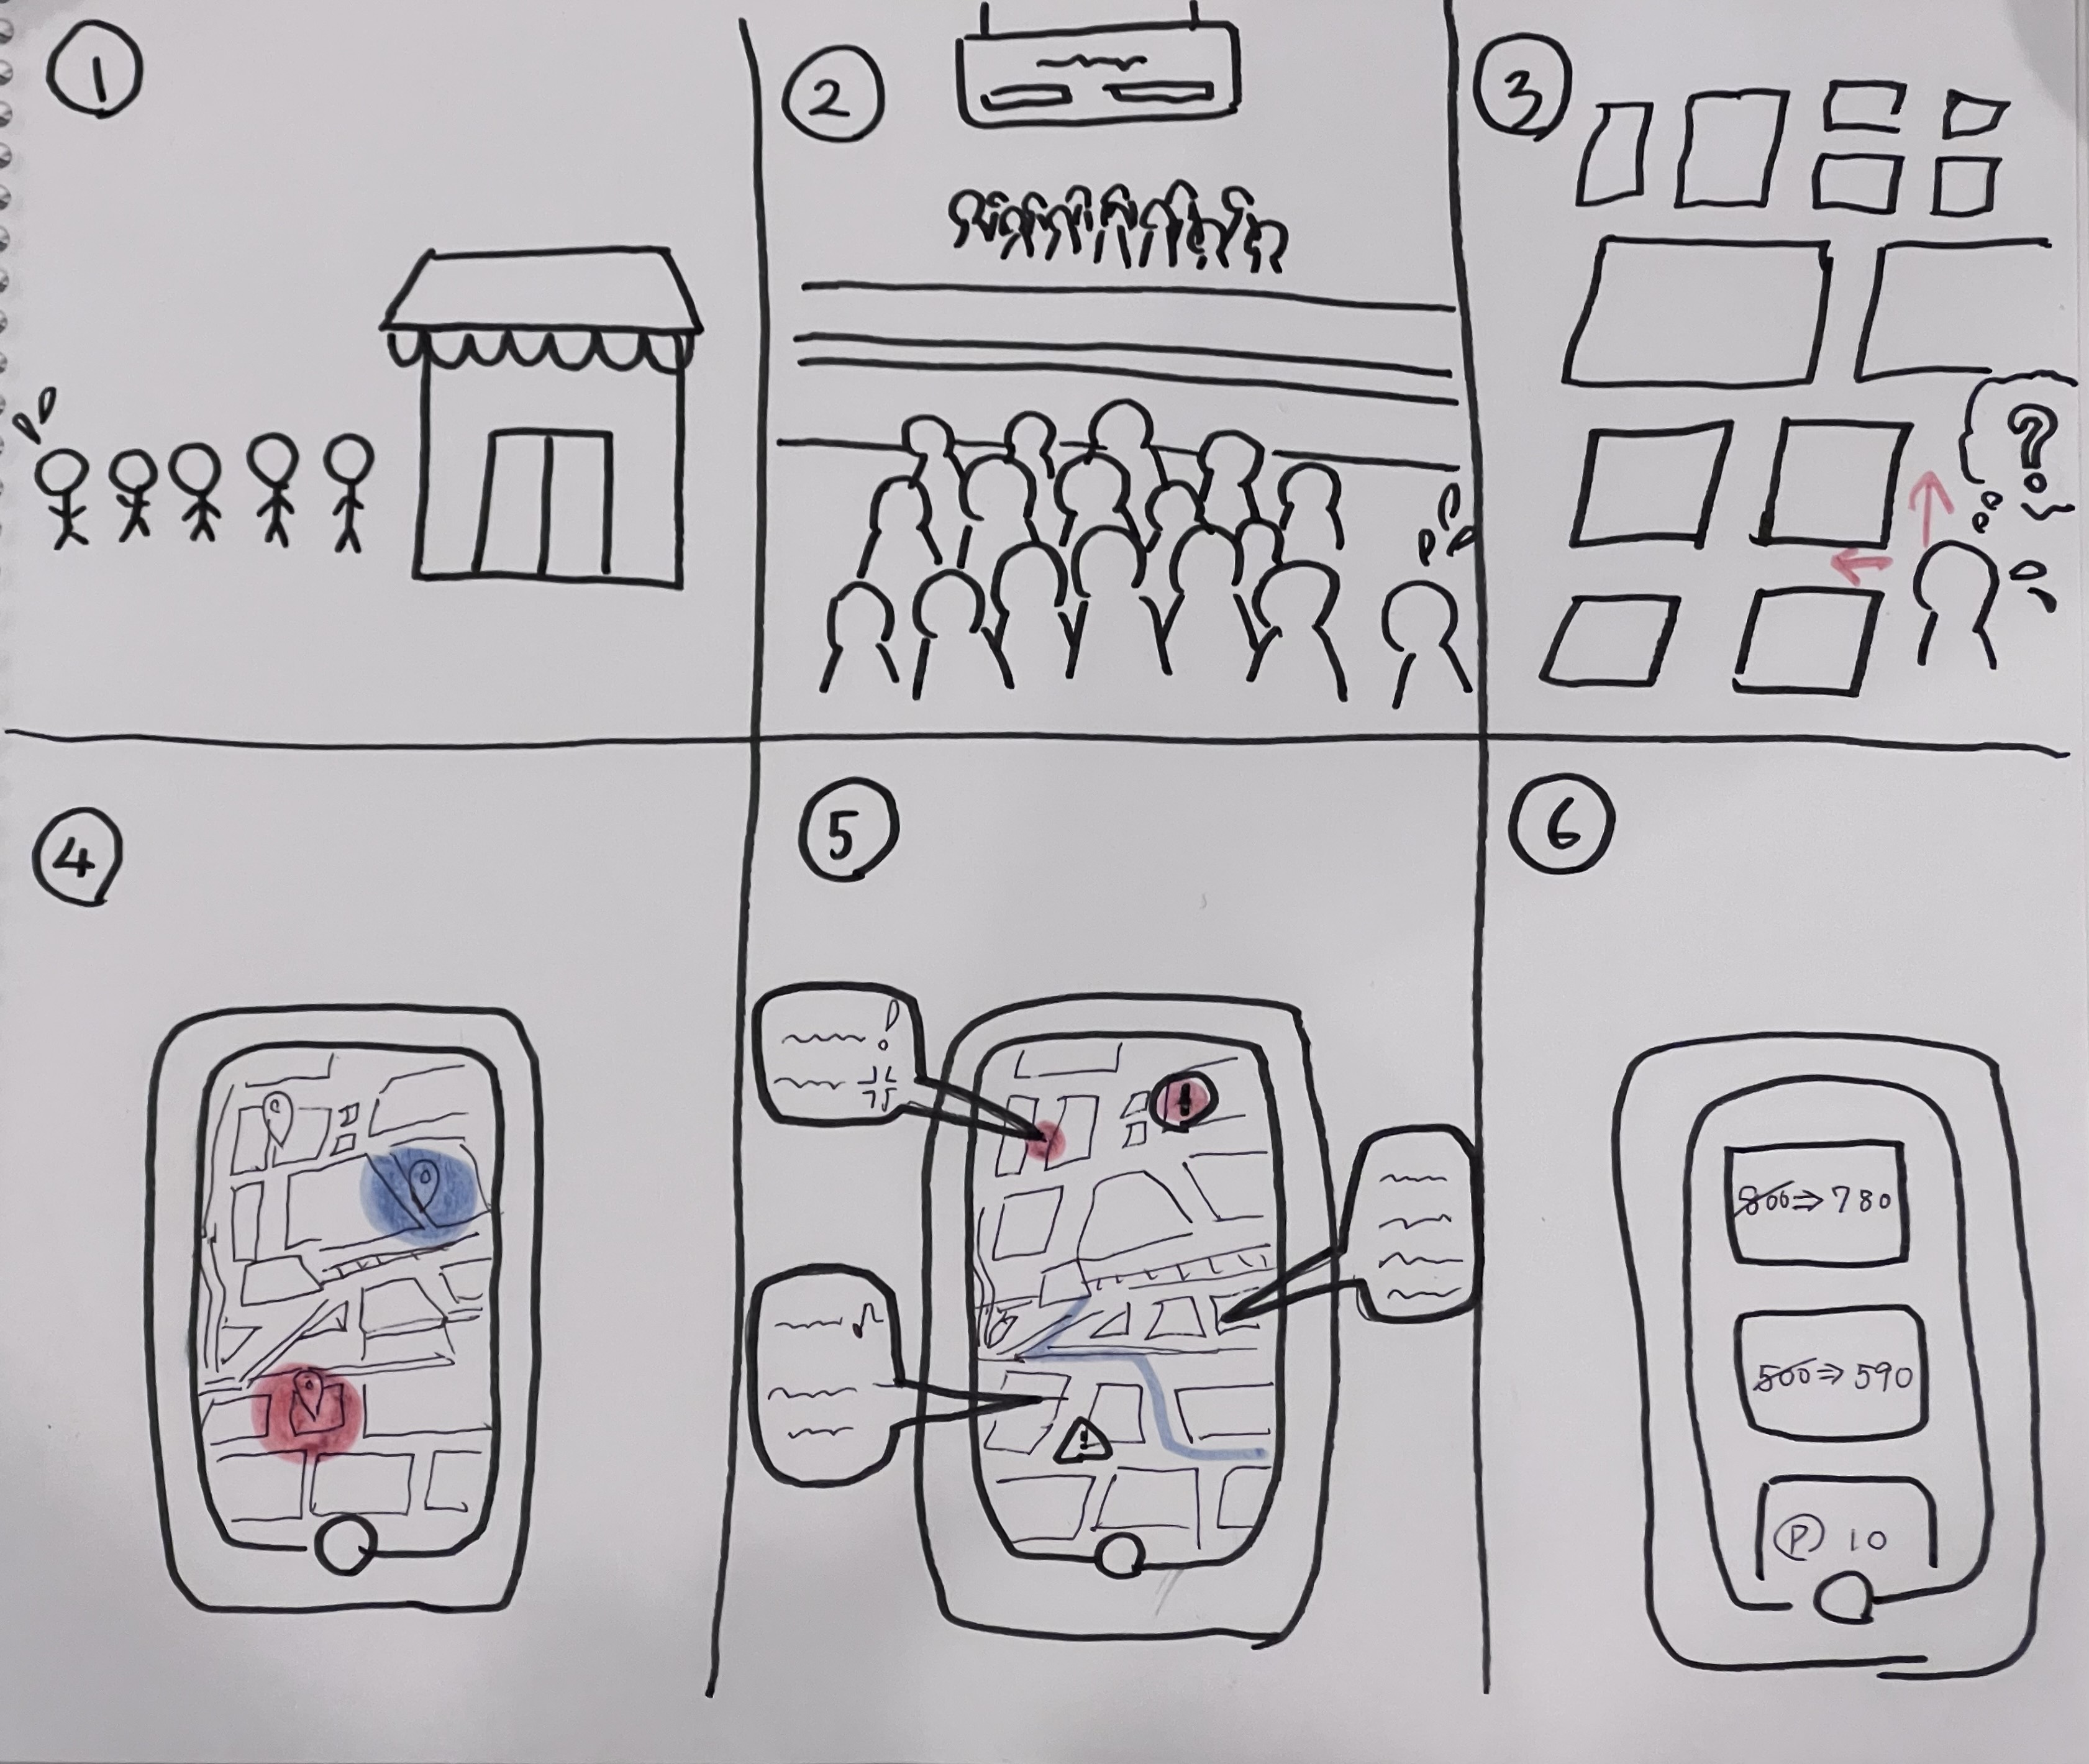 1
2
3
?
4
5
!
!
!
6
800⇒780
500⇒590
Ⓟ 10